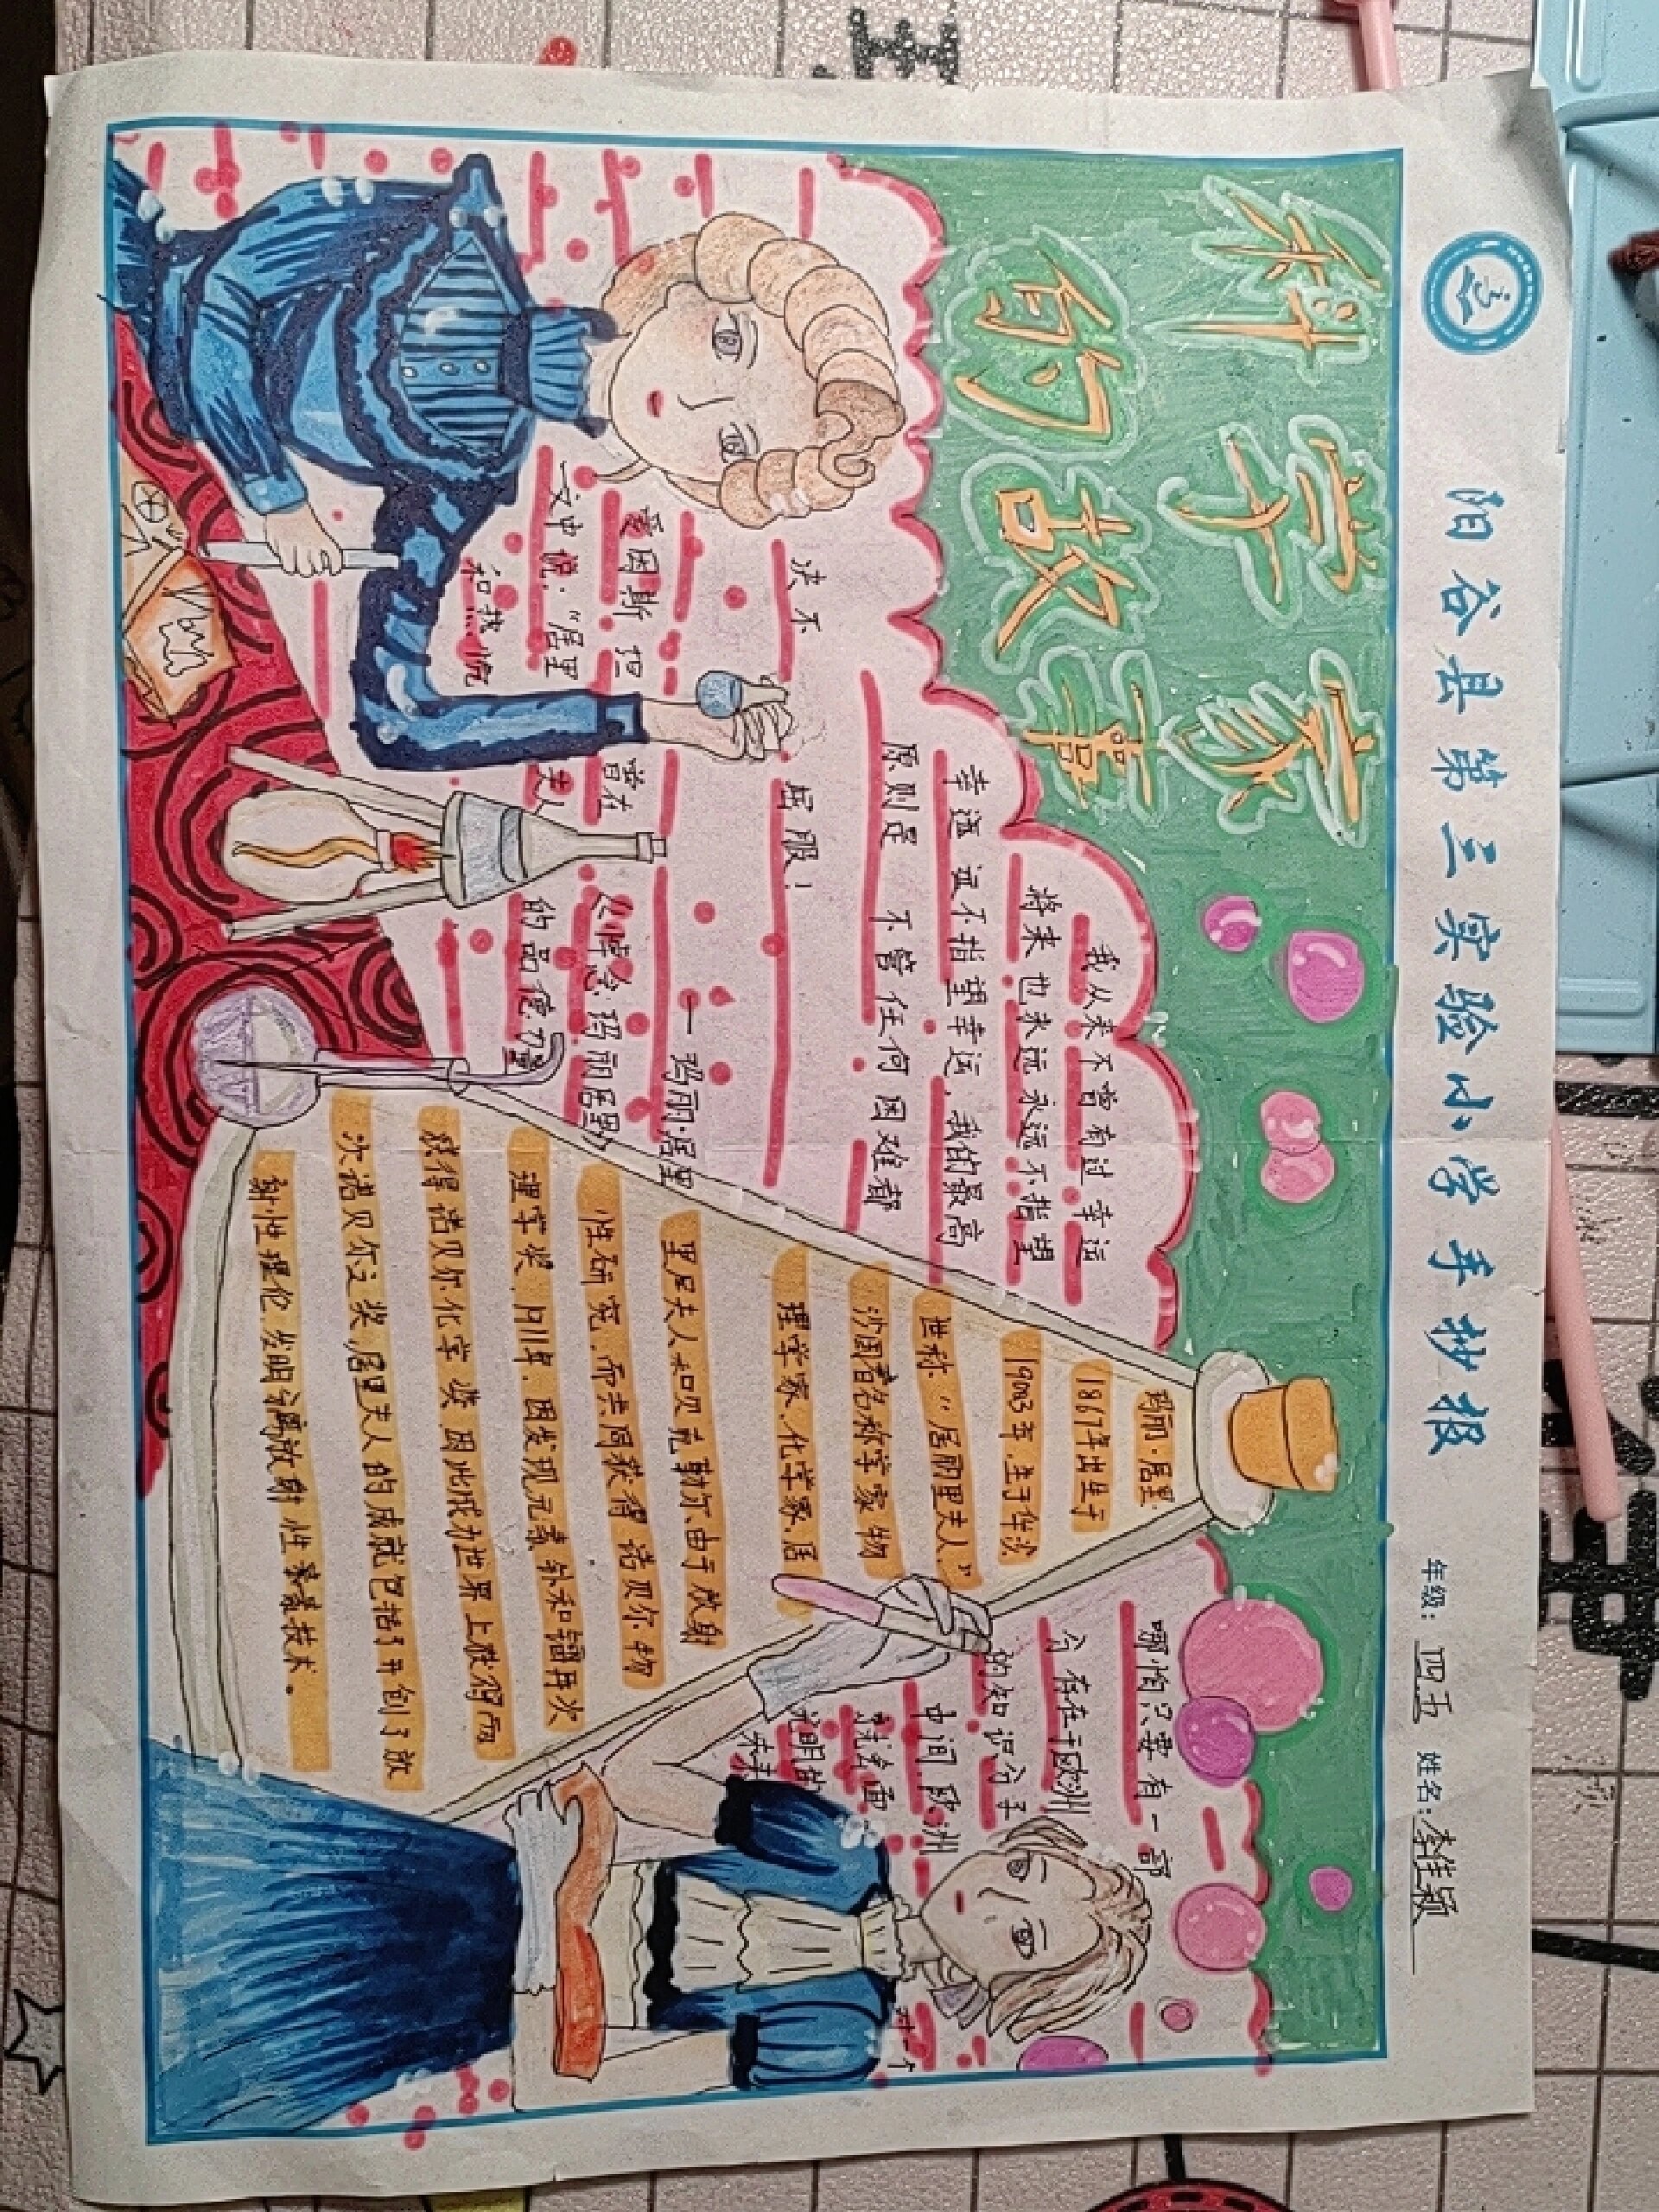 阳谷县第三实验小学手抄报
年级：四五 姓名：李佳颖
科学家
的故事
我从来不曾有过幸运
将来也永远永远不指望
幸运
我的最高
原则是 不管任何困难都
决不 屈服！
一玛丽·居里
爱因斯坦 曾在 悼念玛丽居里
文中说：“居里 夫人 的品德力量
哪怕只要有一部
分存在于欧洲
的知识分子
中间，欧洲
光明的
未来
玛丽·居里
1867年出生于
1903年，生于华沙
世称“居丽里夫人”
沙国著名称学家物
理学家、化学家，居
里居夫人和贝克勒尔由于放射
性研究，而共同获得诺贝尔物
理学奖，1911年，因发现元素钋和镭再次
获得诺贝尔化学奖 因此成为世界上
次诺贝尔之奖，居里夫人的成就包括了开创了放
射性理伦，发明
放射性
技术。